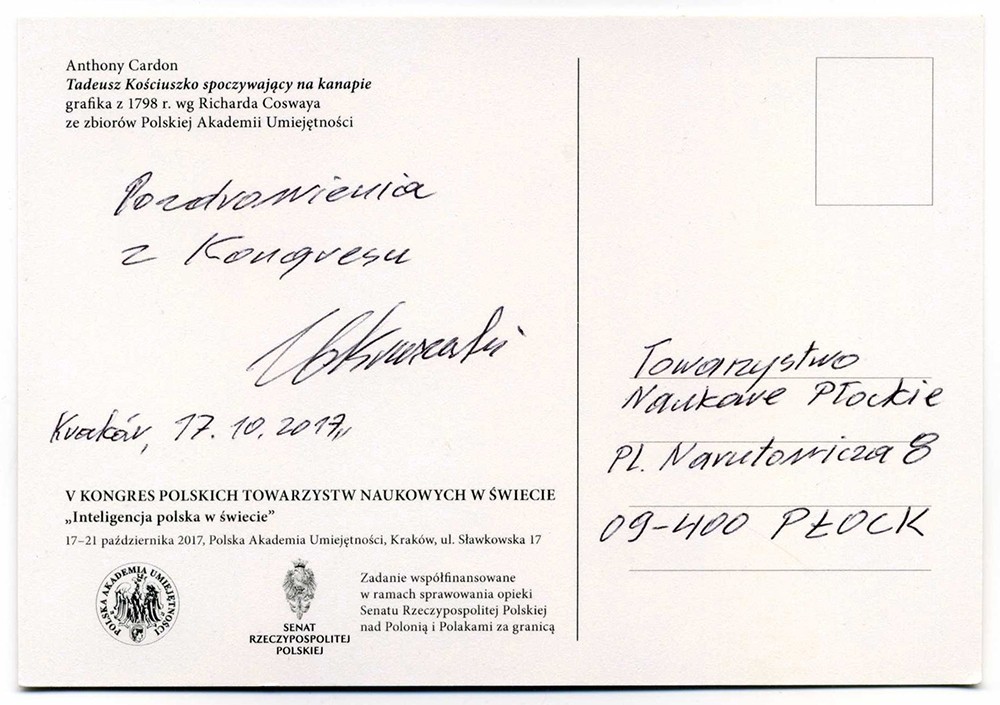 Anthony Cardon
Tadeusz Kościuszko spoczywający na kanapie
grafika z 1798 r. wg Richarda Coswaya
ze zbiorów Polskiej Akademii Umiejętności
Pozdrowienia
z Kongresu
Kraków, 17.10.2017
V KONGRES POLSKICH TOWARZYSTW NAUKOWYCH W ŚWIECIE
„Inteligencja polska w świecie”
17–21 października 2017, Polska Akademia Umiejętności, Kraków, ul. Sławkowska 17
POLSKA AKADEMIA UMIEJĘTNOŚCI
SENAT
RZECZYPOSPOLITEJ
POLSKIEJ
Zadanie współfinansowane
w ramach sprawowania opieki
Senatu Rzeczypospolitej Polskiej
nad Polonią i Polakami za granicą
Towarzystwo
Naukowe Płockie
Pl. Narutowicza 8
09-400 PŁOCK